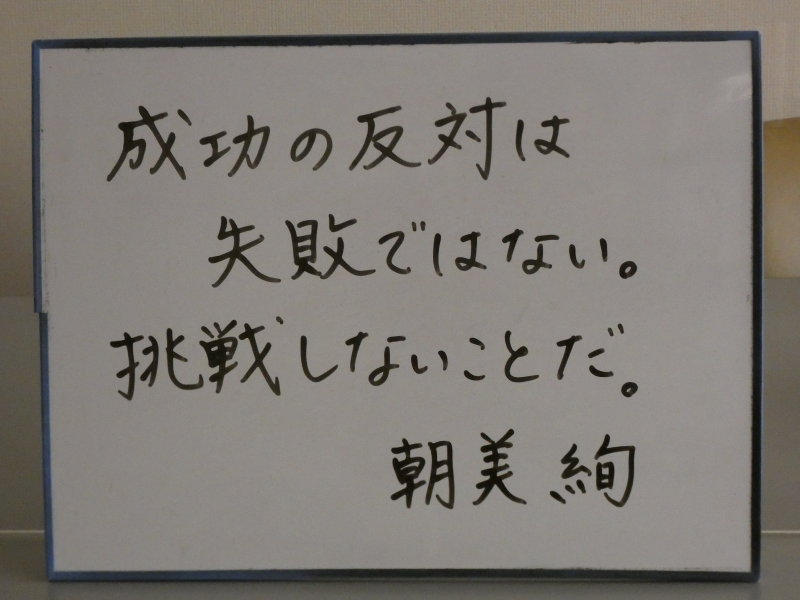 成功の反対は
失敗ではない。
挑戦しないことだ。
朝美絢